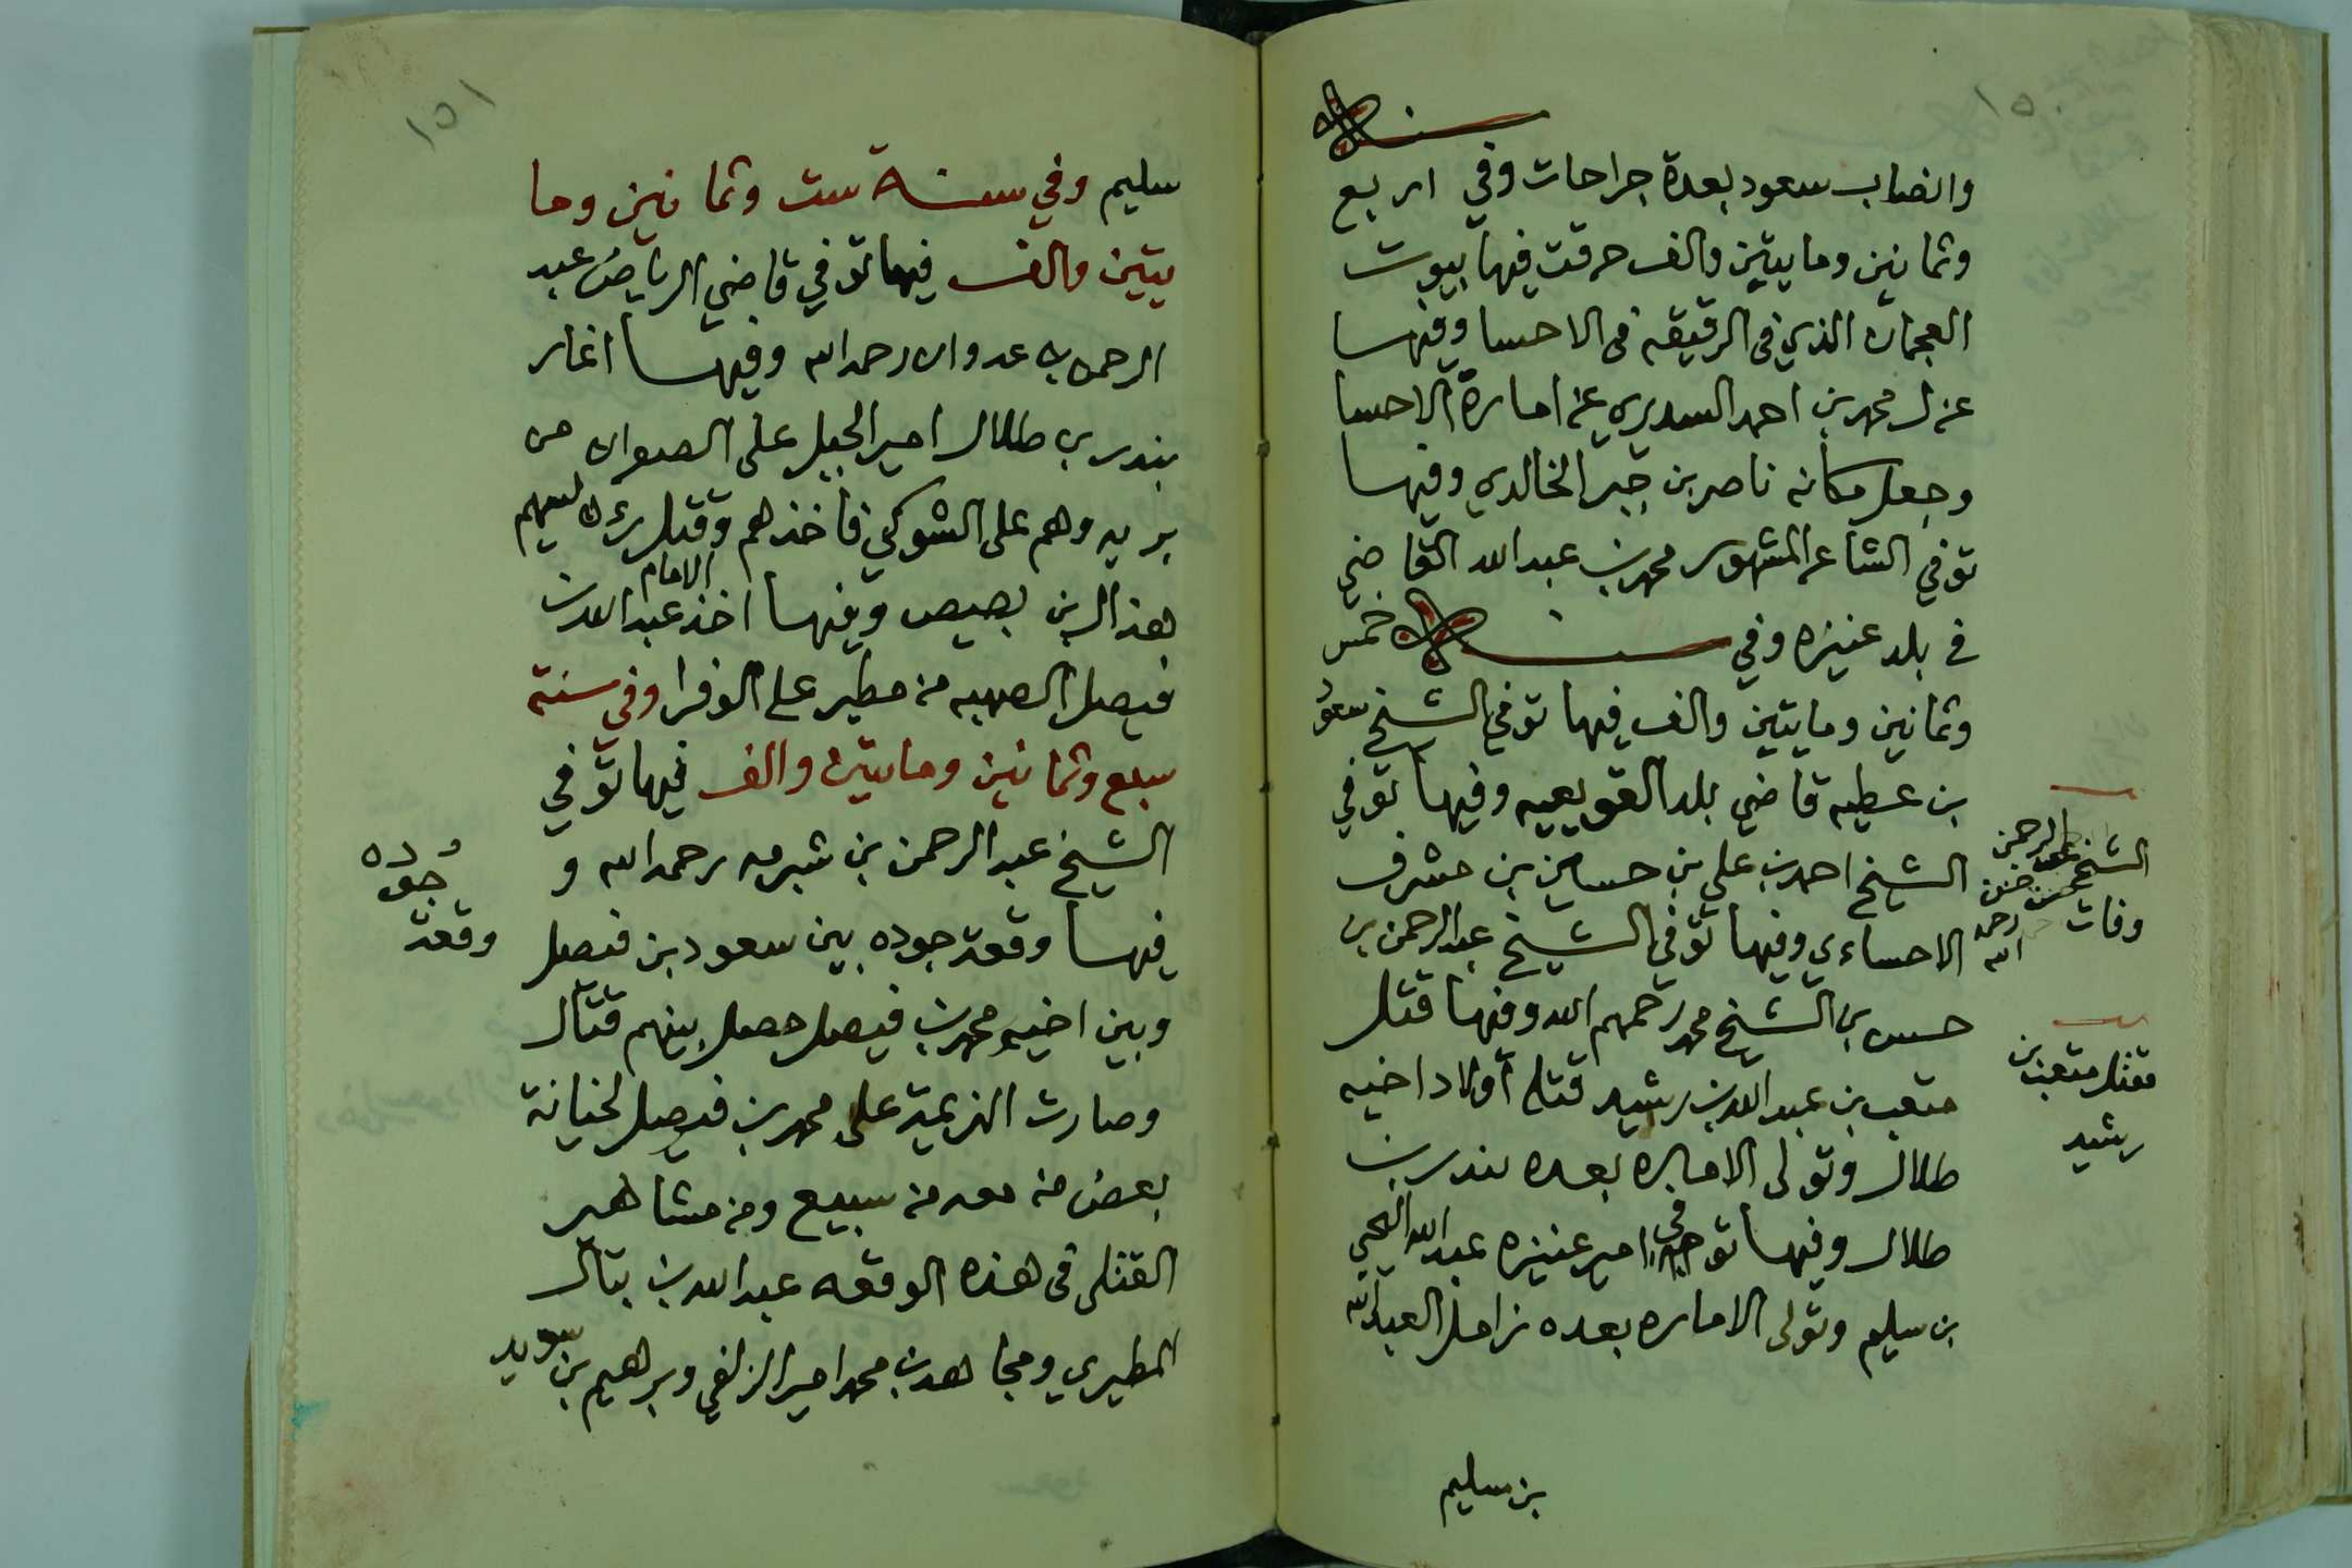 ١٥٠
سنة
والضاب سعود بعدة جراحات وفي اربع
وثمانين ومايتين والف حرقت فيها بيوت
العجمان الذي في الرقيقه في الاحسا وفيها
عزل محمد بن احمد السديري عن امارة الاحسا
وجعل مكانه ناصر بن جبر الخالدي وفيها
توفي الشاعر المشهور محمد بن عبدالله القاضي
في بلد عنيزه وفي سنة خمس
وثمانين ومايتين والف فيها توفي الشيخ سعود
بن عطيه قاضي بلد القويعيه وفيها توفي
الشيخ احمد بن علي بن حسين بن مشرف
الاحساءي وفيها توفي الشيخ عبدالرحمن بن
حسن بن الشيخ محمد رحمهم الله وفيها قتل
متعب بن عبدالله بن رشيد قتله أولاد اخيه
طلال وتولى الاماره بعده بندر بن
طلال وفيها توفي امير عنيزه عبدالله اليحيى
بن سليم وتولى الاماره بعده زامل العبدالله
بن سليم
وفات الشيخ عبدالرحمن بن حسن رحمه الله
مقتل متعب بن
رشيد
١٥١
سليم وفي سنة ست وثمانين وما
يتين والف فيها توفي قاضي الرياض عبد
الرحمن بن عدوان رحمه الله وفيها اغار
بندر بن طلال امير الجبل على الصعران من
بريه وهم على الشوكي فأخذهم وقتل رئيسهم
هذال بن بصيص وفيها اخذ الامام عبدالله بن
فيصل الصهبه من مطير على الوفرا وفي سنة
سبع وثمانين ومايتين والف فيها توفي
الشيخ عبدالرحمن بن شبرمه رحمه الله و
فيها وقعة جوده بين سعود بن فيصل
وبين اخيه محمد بن فيصل حصل بينهم قتال
وصارت الهزيمة على محمد بن فيصل لخيانة
بعض من معه من سبيع ومن مشاهير
القتلى في هذه الوقعه عبدالله بن بتال
المطيري ومجاهد بن محمد امير الزلفي وبرهيم بن سويد
جوده
وقعة